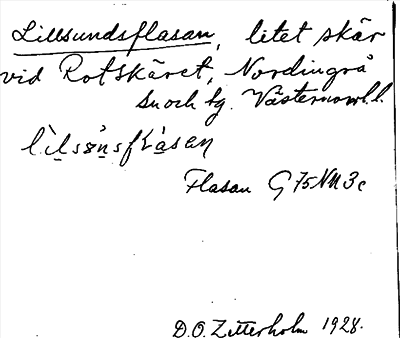 Lillsundsflasan, litet skär
vid Rotskäret, Nordingrå
sn och tg. Västernorrl. l.
Flasan G 75 NV 3c
D.O. Zetterholm 1928.